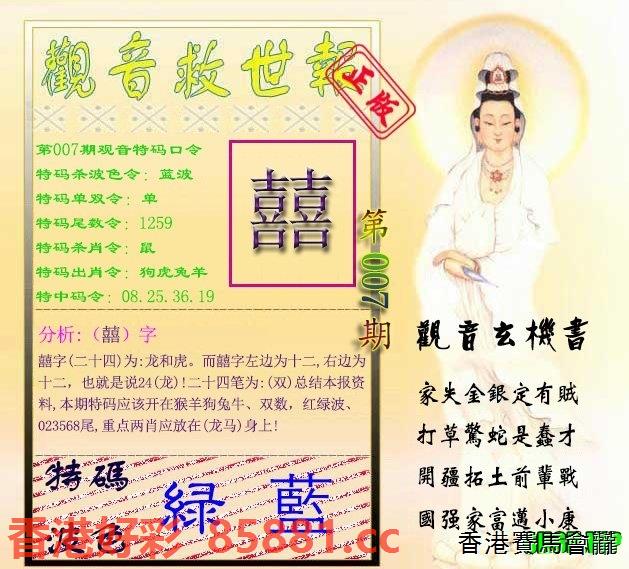 觀音救世報
正版
第007期观音特码口令
特码杀波色令：蓝波
特码单双令：单
特码尾数令：1259
特码杀肖令：鼠
特码出肖令：狗虎兔羊
特中码令：08.25.36.19
囍
第007期
分析:（囍）字
囍字(二十四)为:龙和虎。而囍字左边为十二,右边为
十二，也就是说24(龙)!二十四笔为:(双)总结本报资
料,本期特码应该开在猴羊狗兔牛、双数，红绿波、
023568尾,重点两肖应放在(龙马)身上!
觀音玄機書
家失金銀定有賊
打草驚蛇是蠢才
開疆拓土前輩戰
國强家富邁小康
特碼
波色
緑 藍
香港好彩 85881.cc
香港賽馬會